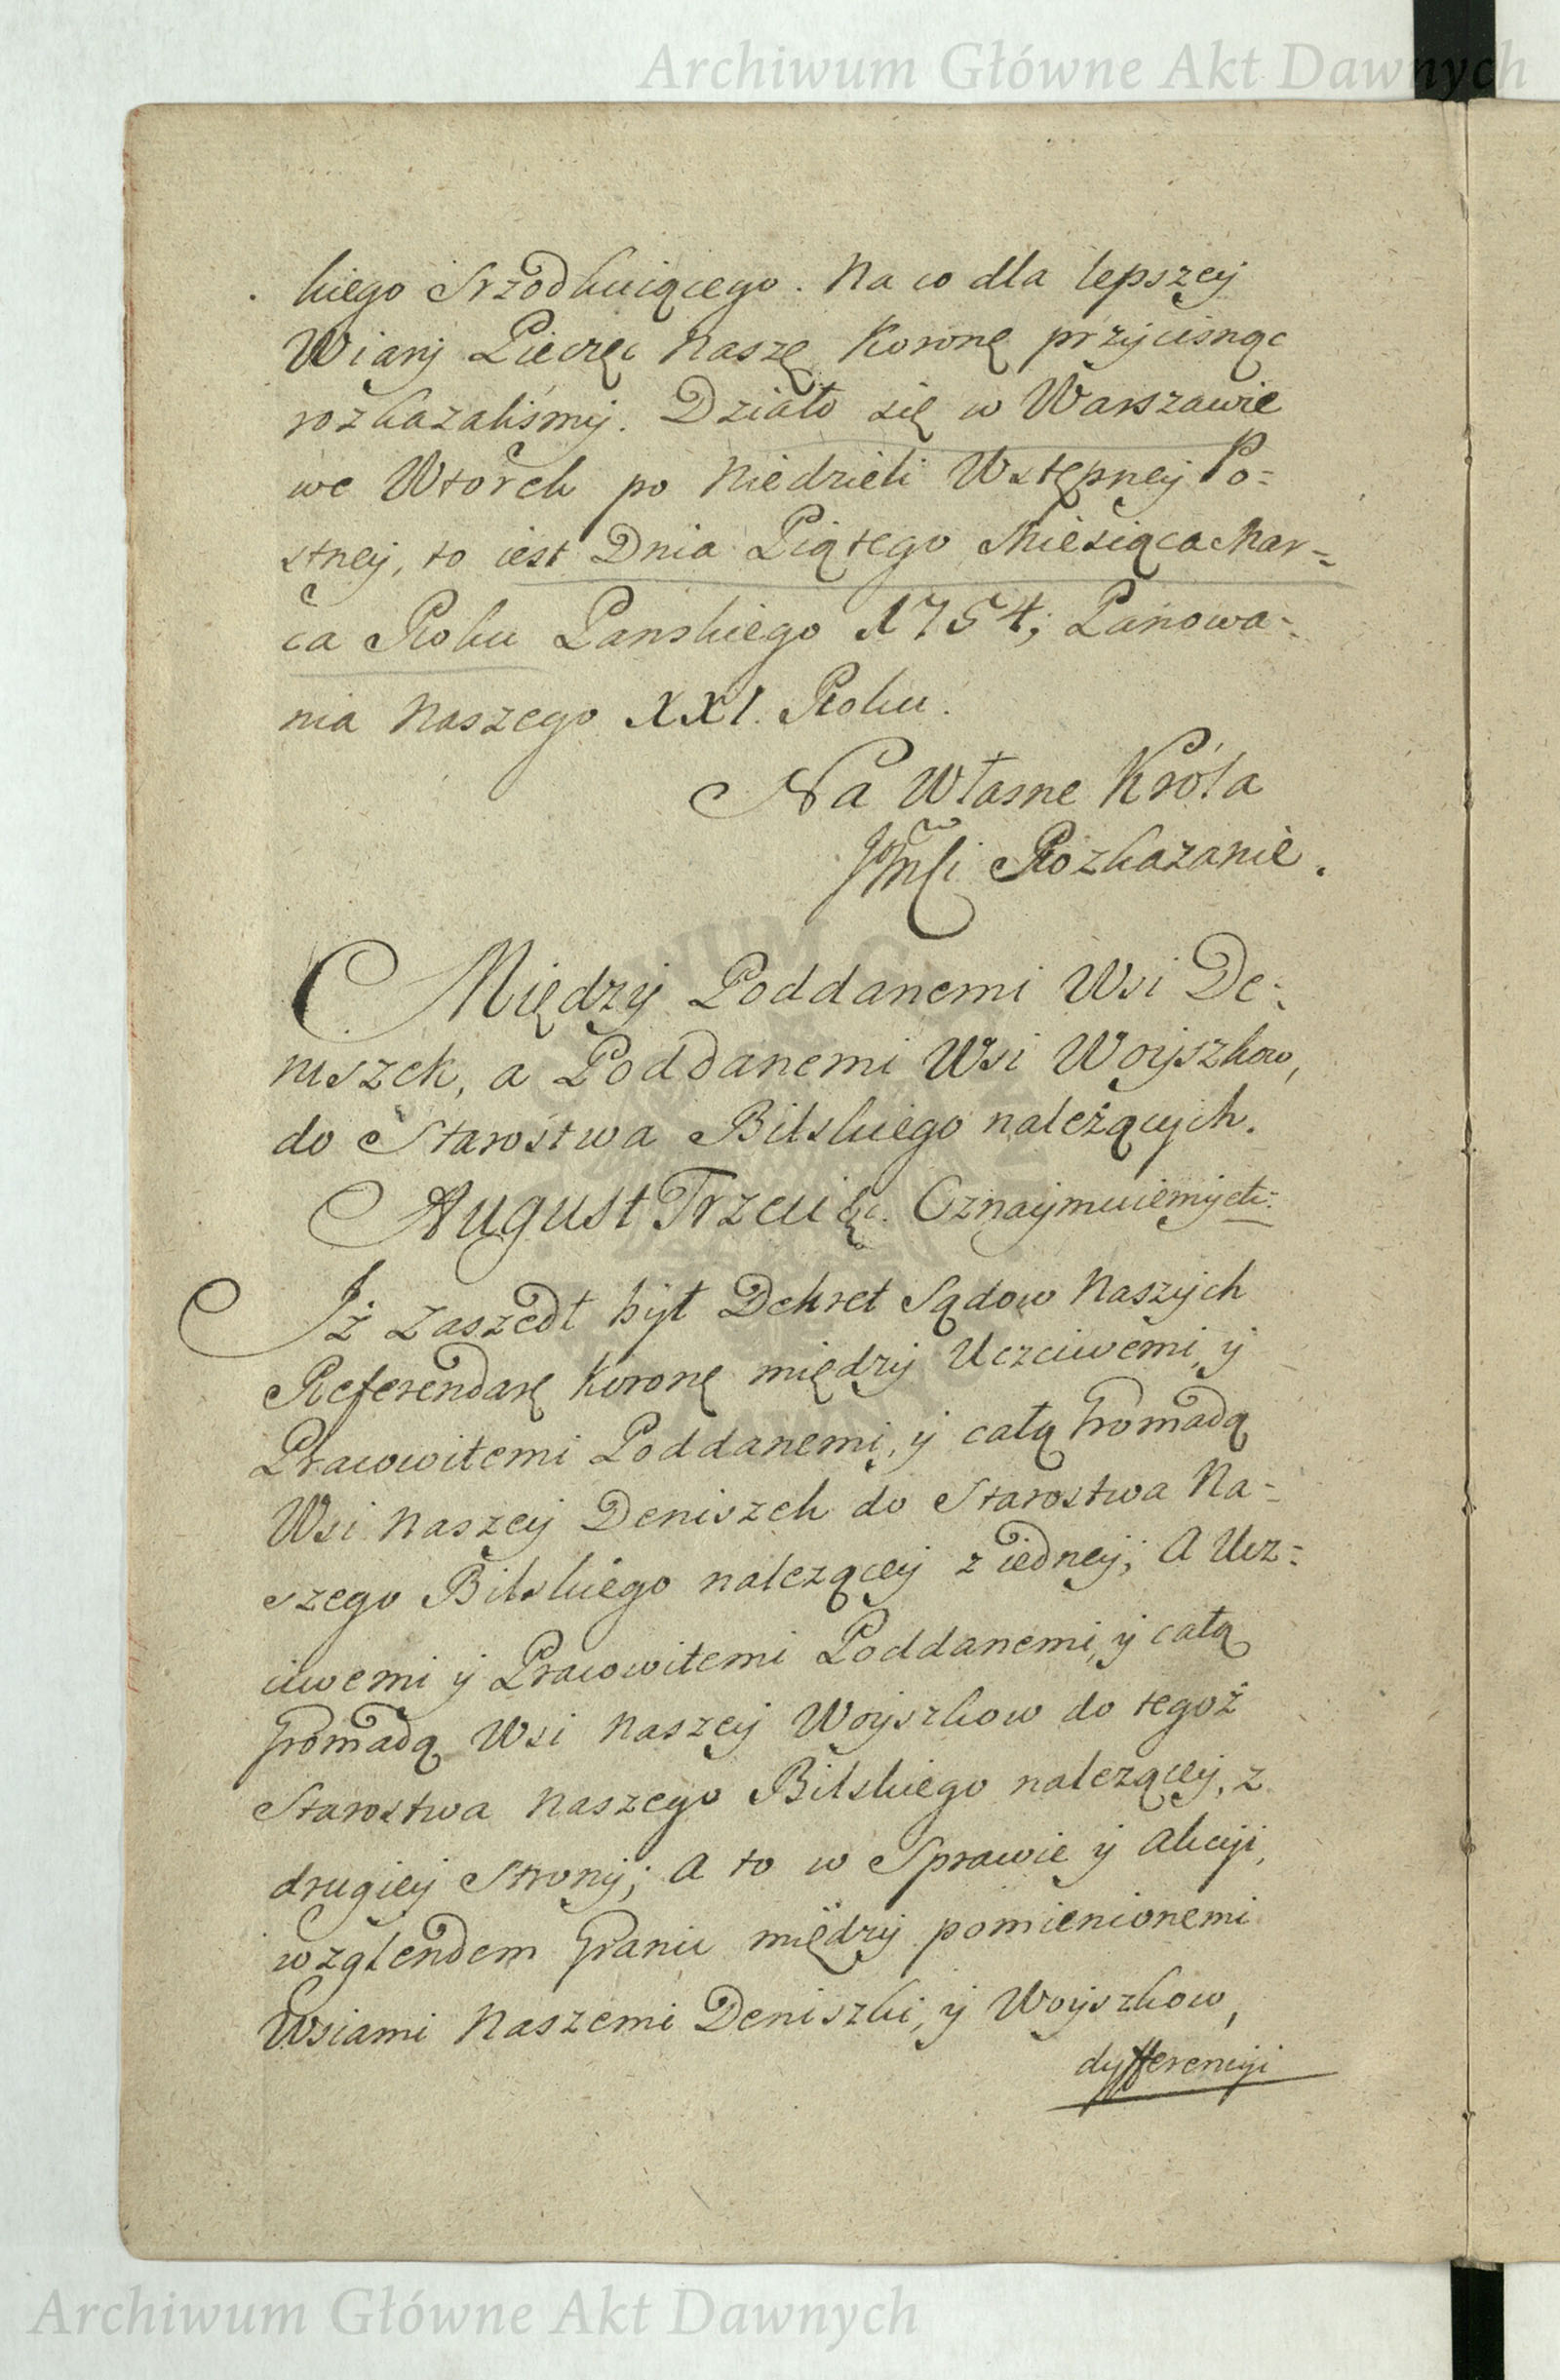 Archiwum Główne Akt Dawnych
kiego Srzodkuiącego. Na co dla lepszey
Wiary Pieczęc Naszę Koronę przycisnąc
rozkazalismy. Działo się w Warszawie
we Wtorek po Niedzieli Wstępney Po-
stney, to iest Dnia Piątego Miesiąca Mar-
ca Roku Panskiego 1754; Panowa-
nia Naszego XXI. Roku.
Na Własne Króla
JMci Rozkazanie.
Między Poddanemi Wsi De-
niszek, a Poddanemi Wsi Woyszkow,
do Starostwa Bilskiego należących.
August Trzeci &c. Oznaymuiemy etc.
Iż zaszedł był Dekret Sądow Naszych
Referendarę Koronę między Uczciwemi, y
Pracowitemi Poddanemi, y całą Gromadą
Wsi Naszey Deniszek do Starostwa Na-
szego Bilskiego nalezącey z iedney; A Ucz-
ciwemi y Pracowitemi Poddanemi, y całą
Gromadą Wsi Naszey Woyszkow do tegoż
Starostwa Naszego Bilskiego nalezącey, z
drugiey Strony; A to w Sprawie y Akcyi,
wzglendem Granic między pomienionemi
Wsiami Naszemi Deniszki, y Woyszkow,
dyfferencyi
Archiwum Główne Akt Dawnych